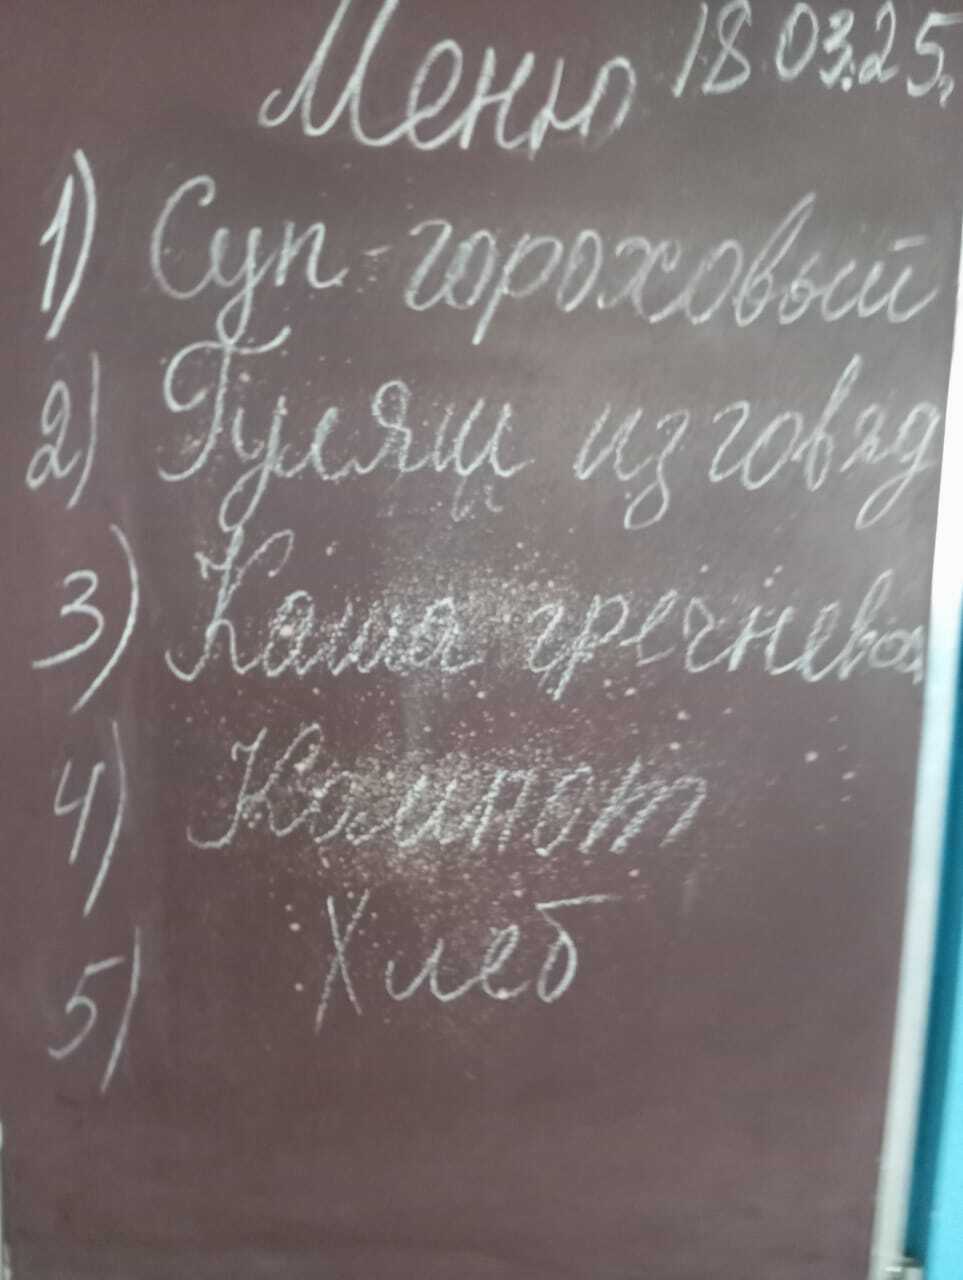 Меню 18.03.25.
1) Суп-гороховый
2) Гуляш из говяд
3) Каша гречневая
4) Компот
5) Хлеб